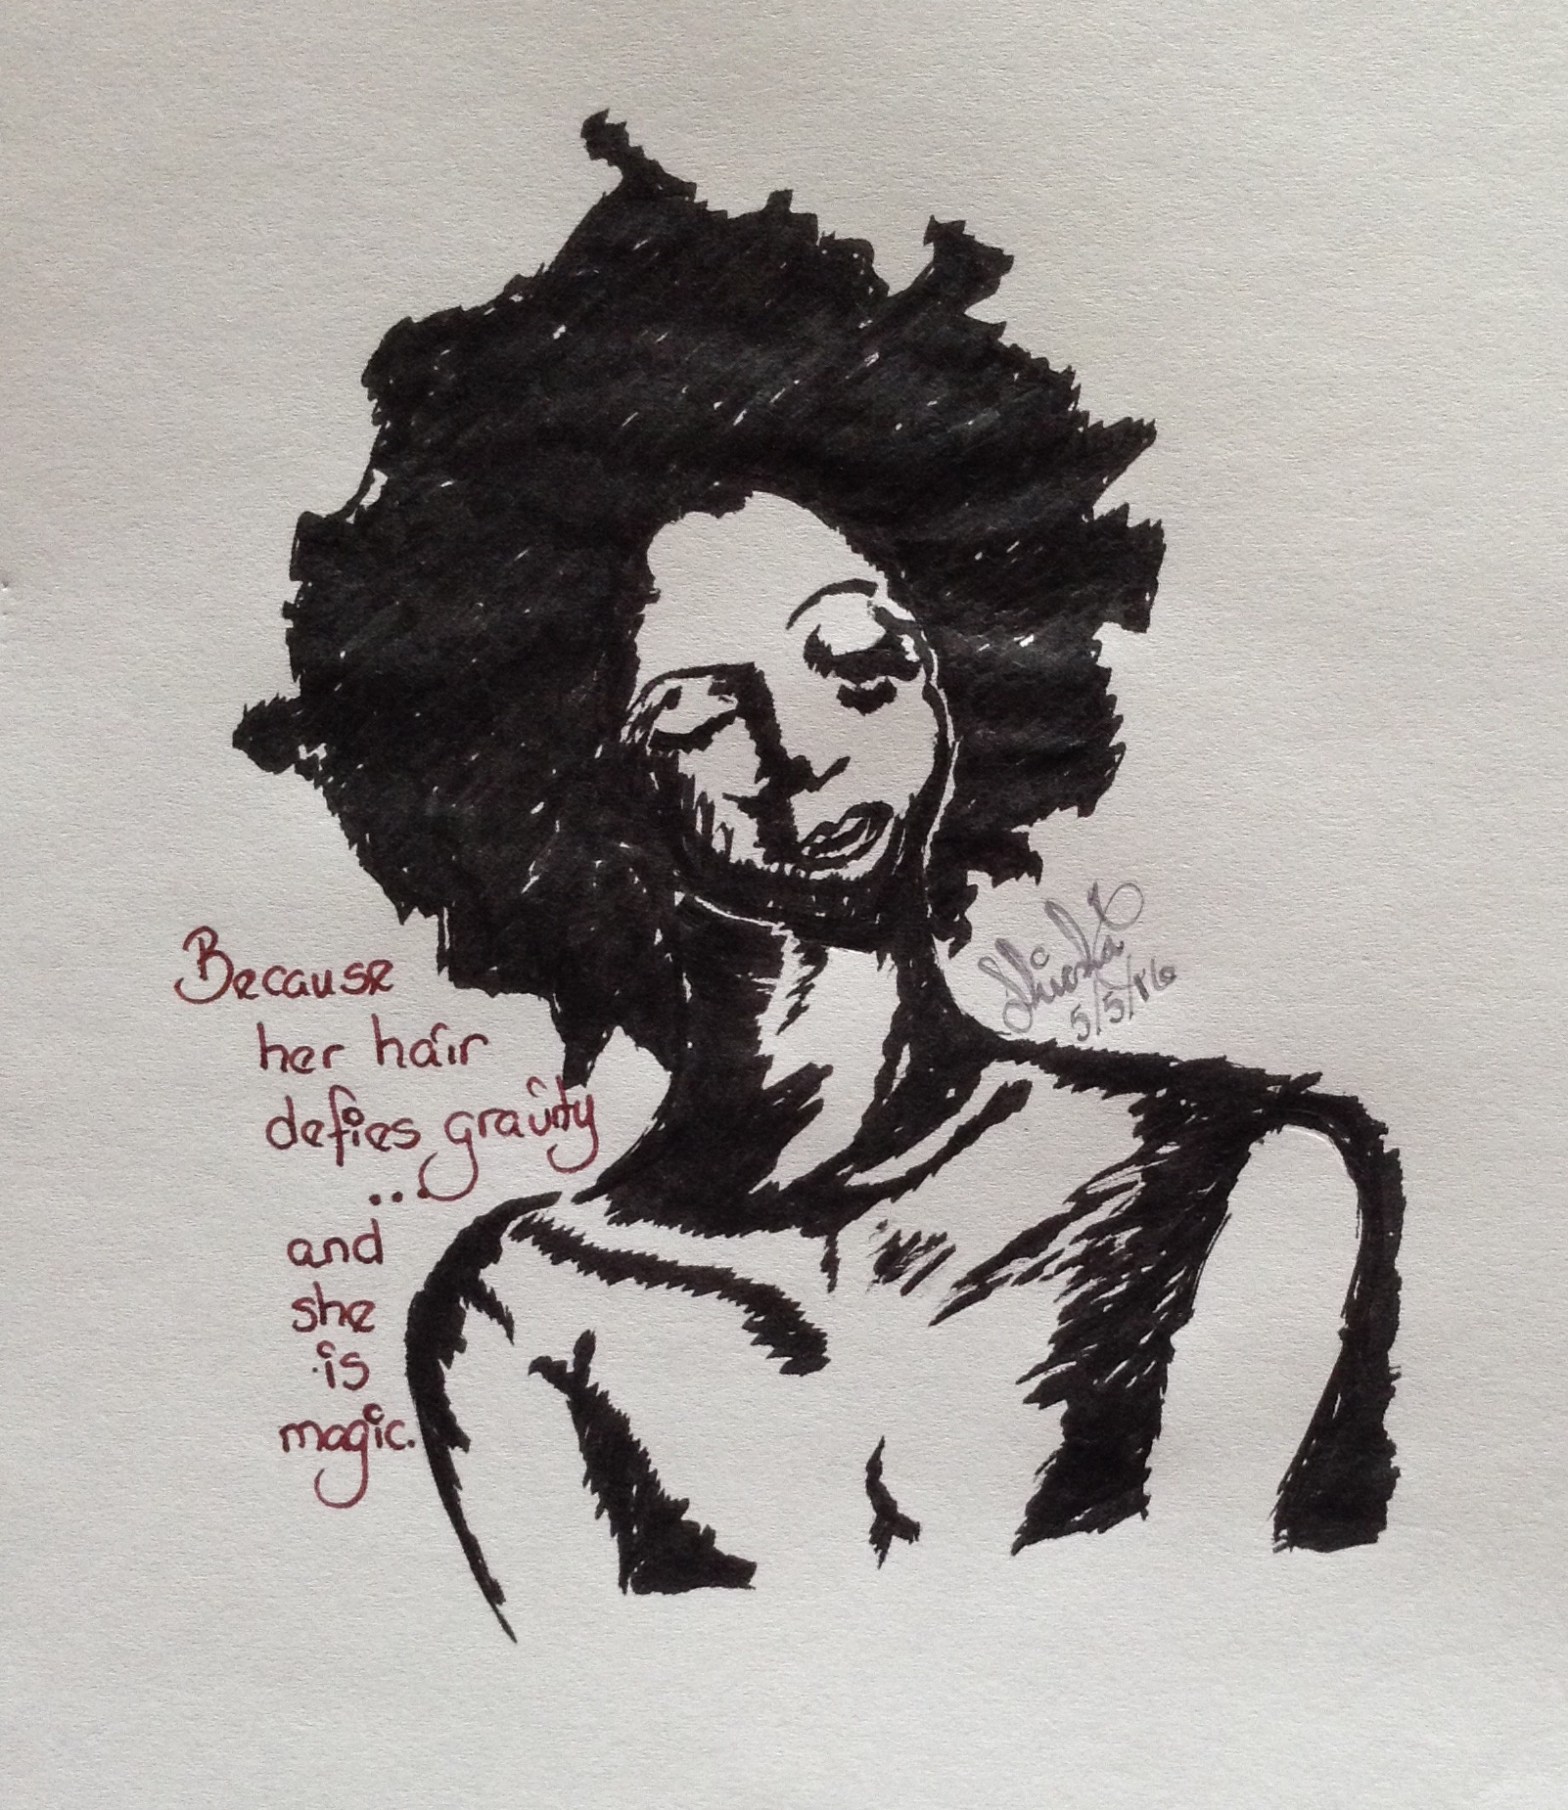 Because
her hair
defies gravity
...
and
she
is
magic.
5/5/16